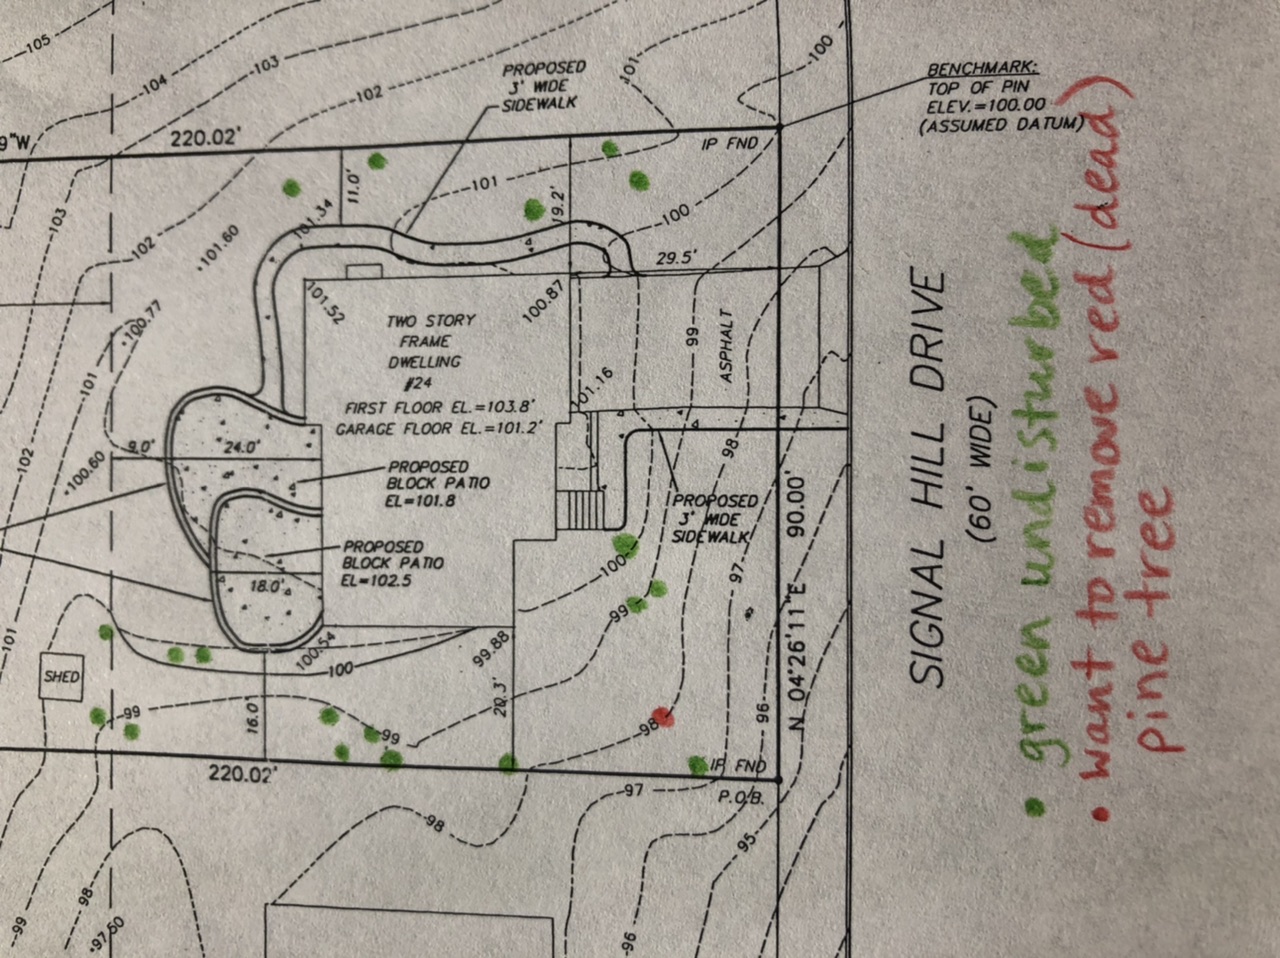 105
104
103
102
101
100
BENCHMARK:
TOP OF PIN
ELEV.=100.00
(ASSUMED DATUM)
PROPOSED
3' WIDE
SIDEWALK
9"W
220.02'
IP FND
11.0'
101
19.2'
100
103
102
101.60
101.34
29.5'
101.52
100.87
100.77
TWO STORY
FRAME
DWELLING
#24
FIRST FLOOR EL.=103.8'
GARAGE FLOOR EL.=101.2'
101.16
99
ASPHALT
98
101
102
100.60
9.0'
24.0'
PROPOSED
BLOCK PATIO
EL=101.8
PROPOSED
BLOCK PATIO
EL=102.5
18.0'
PROPOSED
3' WIDE
SIDEWALK
100
99
97
96
98
N 04°26'11"E 90.00'
SIGNAL HILL DRIVE
(60' WIDE)
101
SHED
100.54
100
99.88
99
16.0'
99
20.3'
220.02'
IP FND
P.O.B.
97
98
95
96
98
99
97.50
green undisturbed
want to remove red (dead)
pine tree